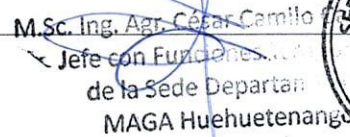 M.Sc. Ing. Agr. César Camilo
Jefe con Funciones
de la Sede Departan
MAGA Huehuetenango